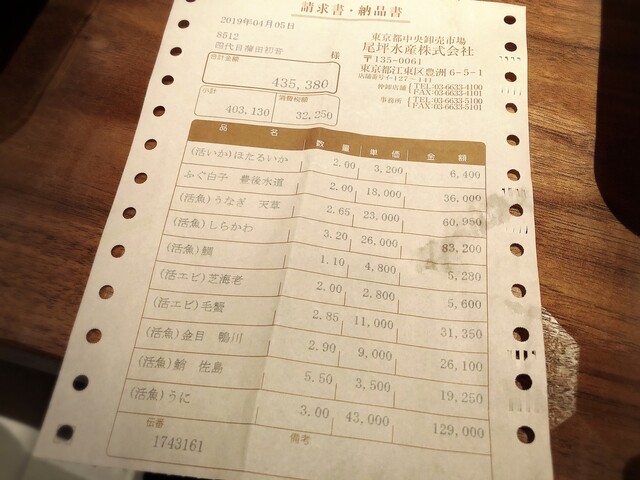 請求書・納品書
2019年04月05日
8512
四代目蒲田初音 様
東京都中央卸売市場
尾坪水産株式会社
〒135-0061
東京都江東区豊洲6-5-1
店舗番号イ-127~141
仲卸店舗 TEL:03-6633-4100
FAX:03-6633-4101
事務所 TEL:03-6633-5100
FAX:03-6633-5101
合計金額
435,380
小計 消費税額
403,130 32,250
品名 数量 単価 金額
(活いか)ほたるいか 2.00 3,200 6,400
ふぐ白子 豊後水道 2.00 18,000 36,000
(活魚)うなぎ 天草 2.65 23,000 60,950
(活魚)しらかわ 3.20 26,000 83,200
(活魚)鯛 1.10 4,800 5,280
(活エビ)芝海老 2.00 2,800 5,600
(活エビ)毛蟹 2.85 11,000 31,350
(活魚)金目 鴨川 2.90 9,000 26,100
(活魚)鮹 佐島 5.50 3,500 19,250
(活魚)うに 3.00 43,000 129,000
伝番
1743161
備考